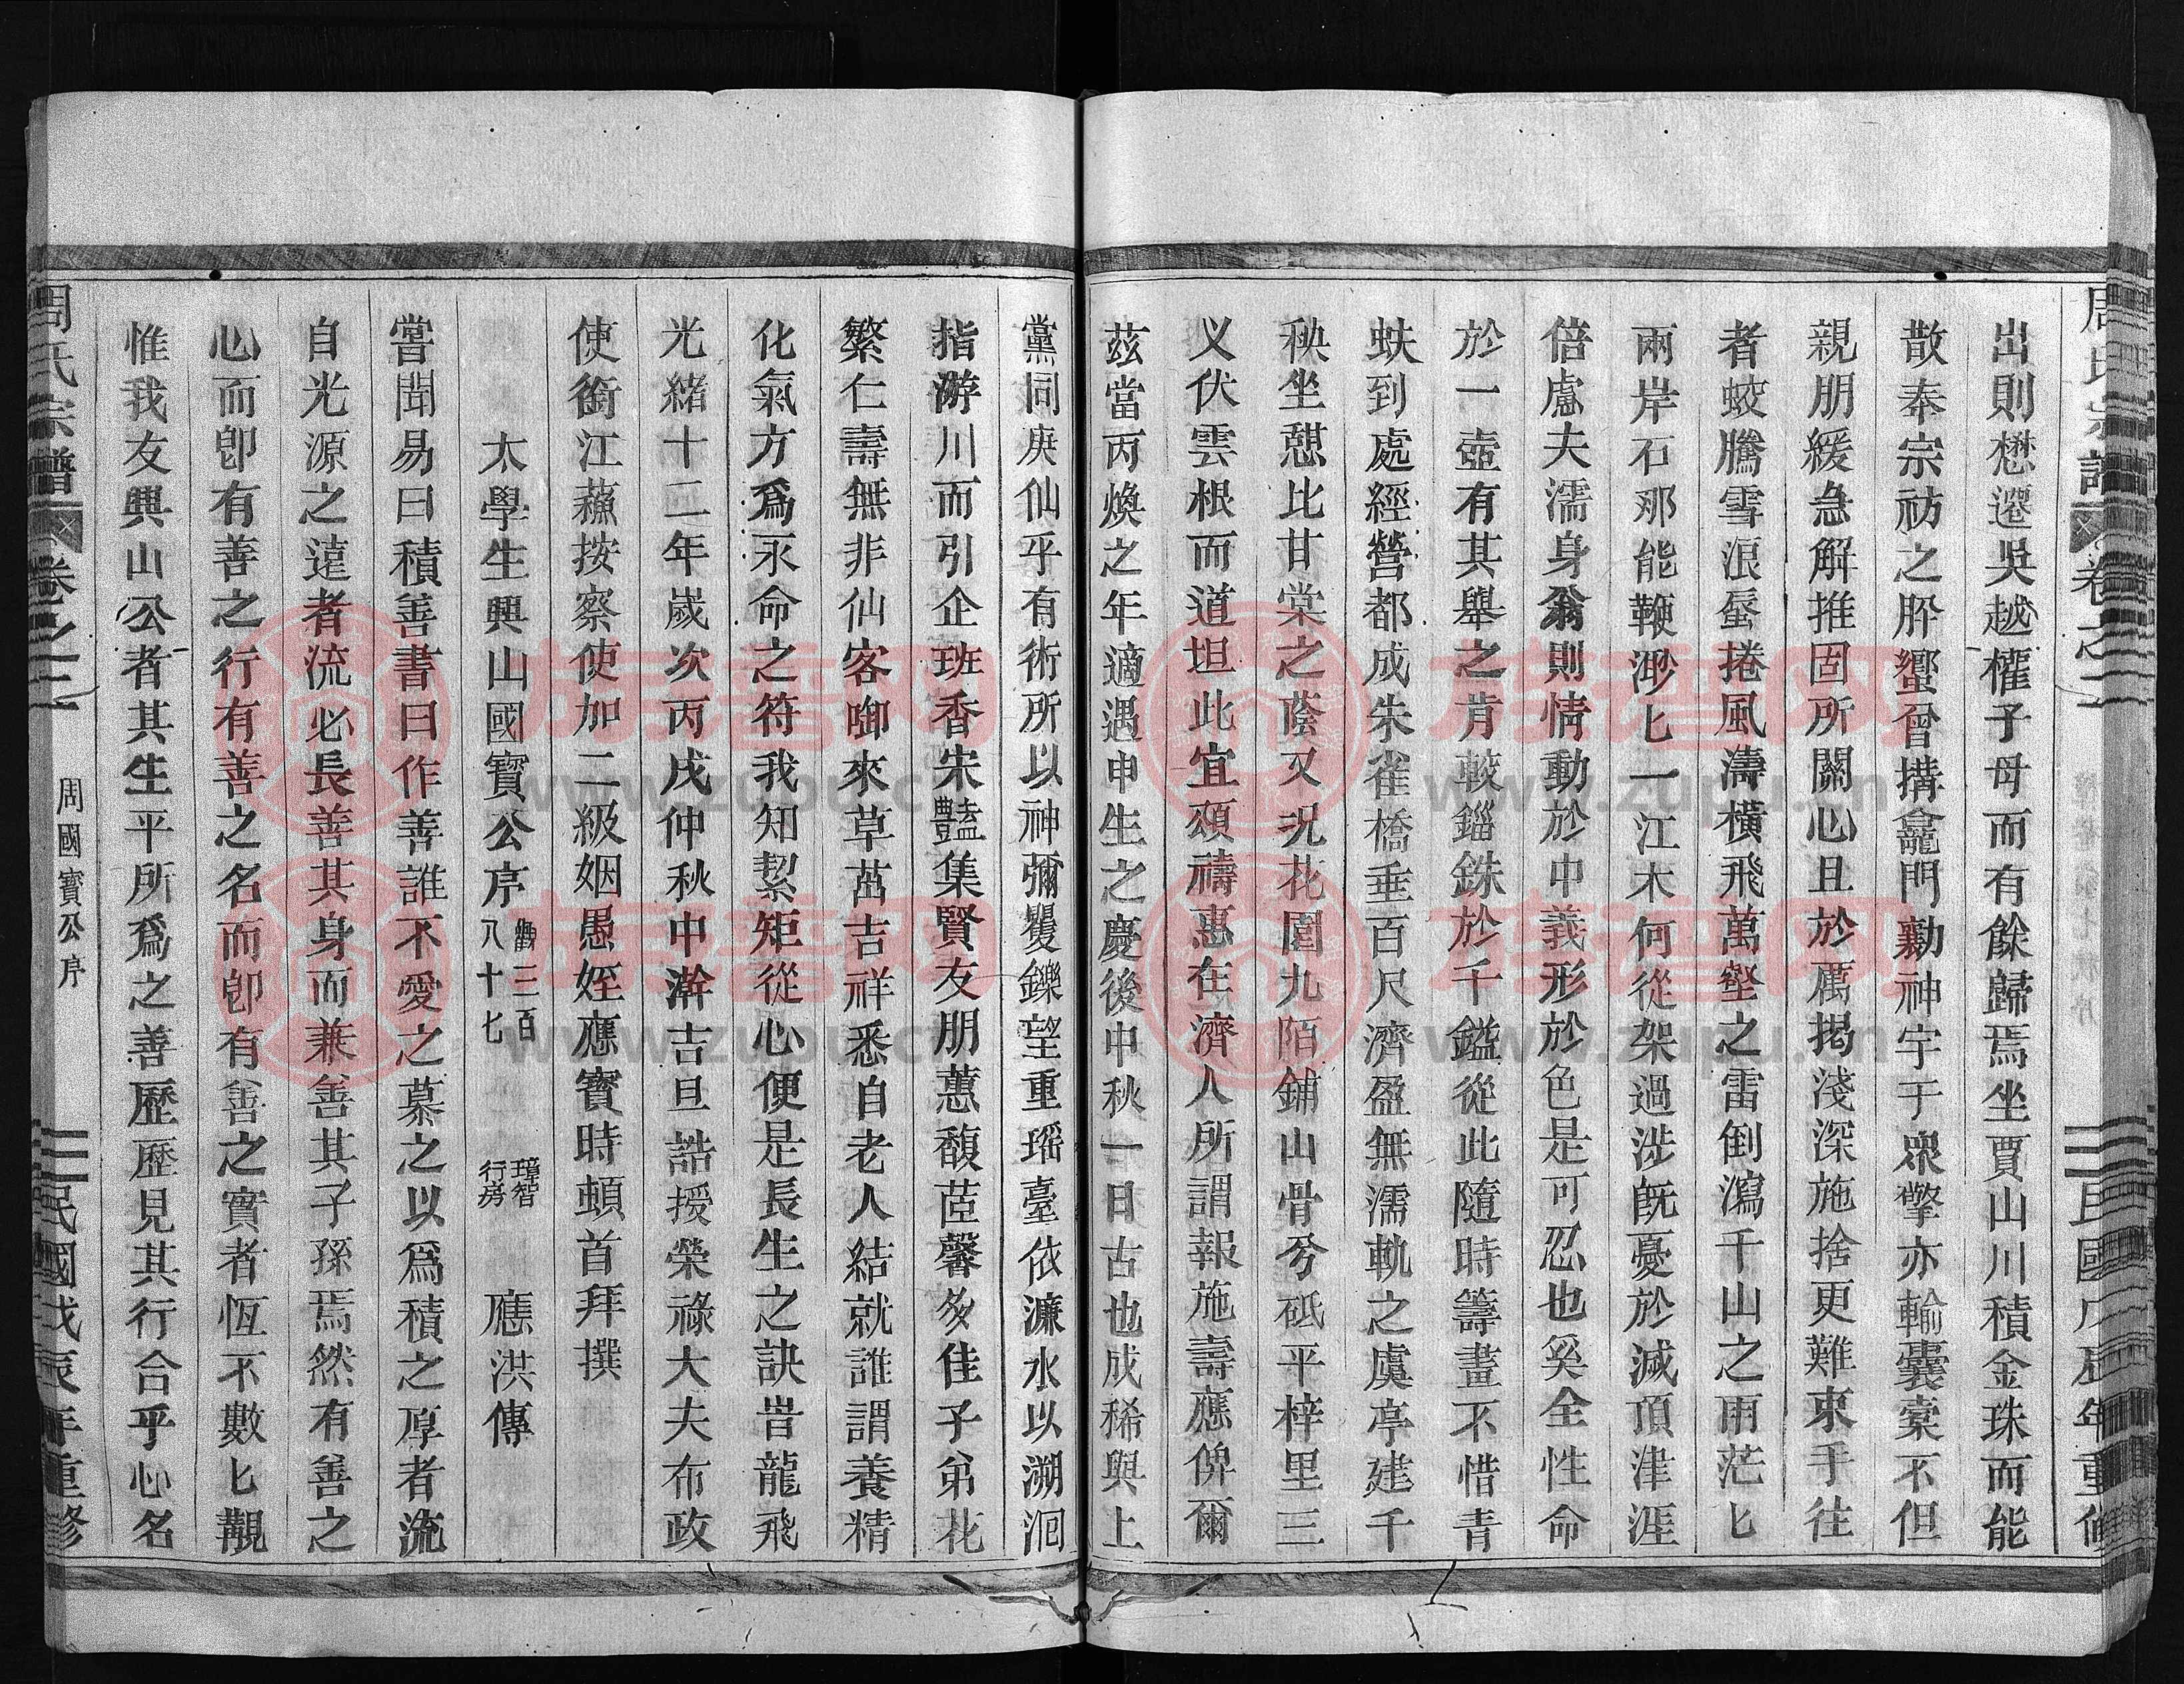 周氏宗譜 卷之二 民國戊辰年重修
出則懋遷吳越權子母而有餘歸焉坐賈山川積金珠而能
散奉宗祊之肸蠁曾搆龕門勷神宇于衆擎亦輸囊橐不但
親朋緩急解推固所關心且於厲揭淺深施捨更難束手往
者蛟騰雪浪蜃捲風濤橫飛萬壑之雷倒瀉千山之雨茫匕
兩岸石那能鞭渺匕一江木何從架過涉旣憂於滅頂津涯
倍慮夫濡身翁則情動於中義形於色是可忍也奚全性命
於一壺有其舉之肯較錙銖於千鎰從此隨時籌畫不惜靑
蚨到處經營都成朱雀橋垂百尺濟盈無濡軌之虞亭建千
秧坐憇比甘棠之蔭又況花園九陌鋪山骨兮砥平梓里三
义伏雲根而道坦此宜頌禱惠在濟人所謂報施壽應俾爾
茲當丙煥之年適遇申生之慶後中秋一日古也成稀與上
黨同庚仙乎有術所以神彌矍鑠望重瑶臺依濂水以溯洄
指游川而引企班香宋豔集賢友朋蕙馥茝馨多佳子弟花
繁仁壽無非仙客啣來草茁吉祥悉自老人結就誰謂養精
化氣方爲永命之符我知絜矩從心便是長生之訣旹龍飛
光緖十二年歲次丙戌仲秋中澣吉旦誥授榮祿大夫布政
使銜江蘇按察使加二級姻愚姪應寶時頓首拜撰
太學生興山國寶公序 三百八十七 璋智行房 應洪傳
嘗聞易曰積善書曰作善誰不愛之慕之以爲積之厚者流
自光源之遠者流必長善其身而兼善其子孫焉然有善之
心而卽有善之行有善之名而卽有善之實者恆不數匕覯
惟我友興山公者其生平所爲之善歷歷見其行合乎心名
周氏宗譜 卷之二 周國寶公序 民國戊辰年重修